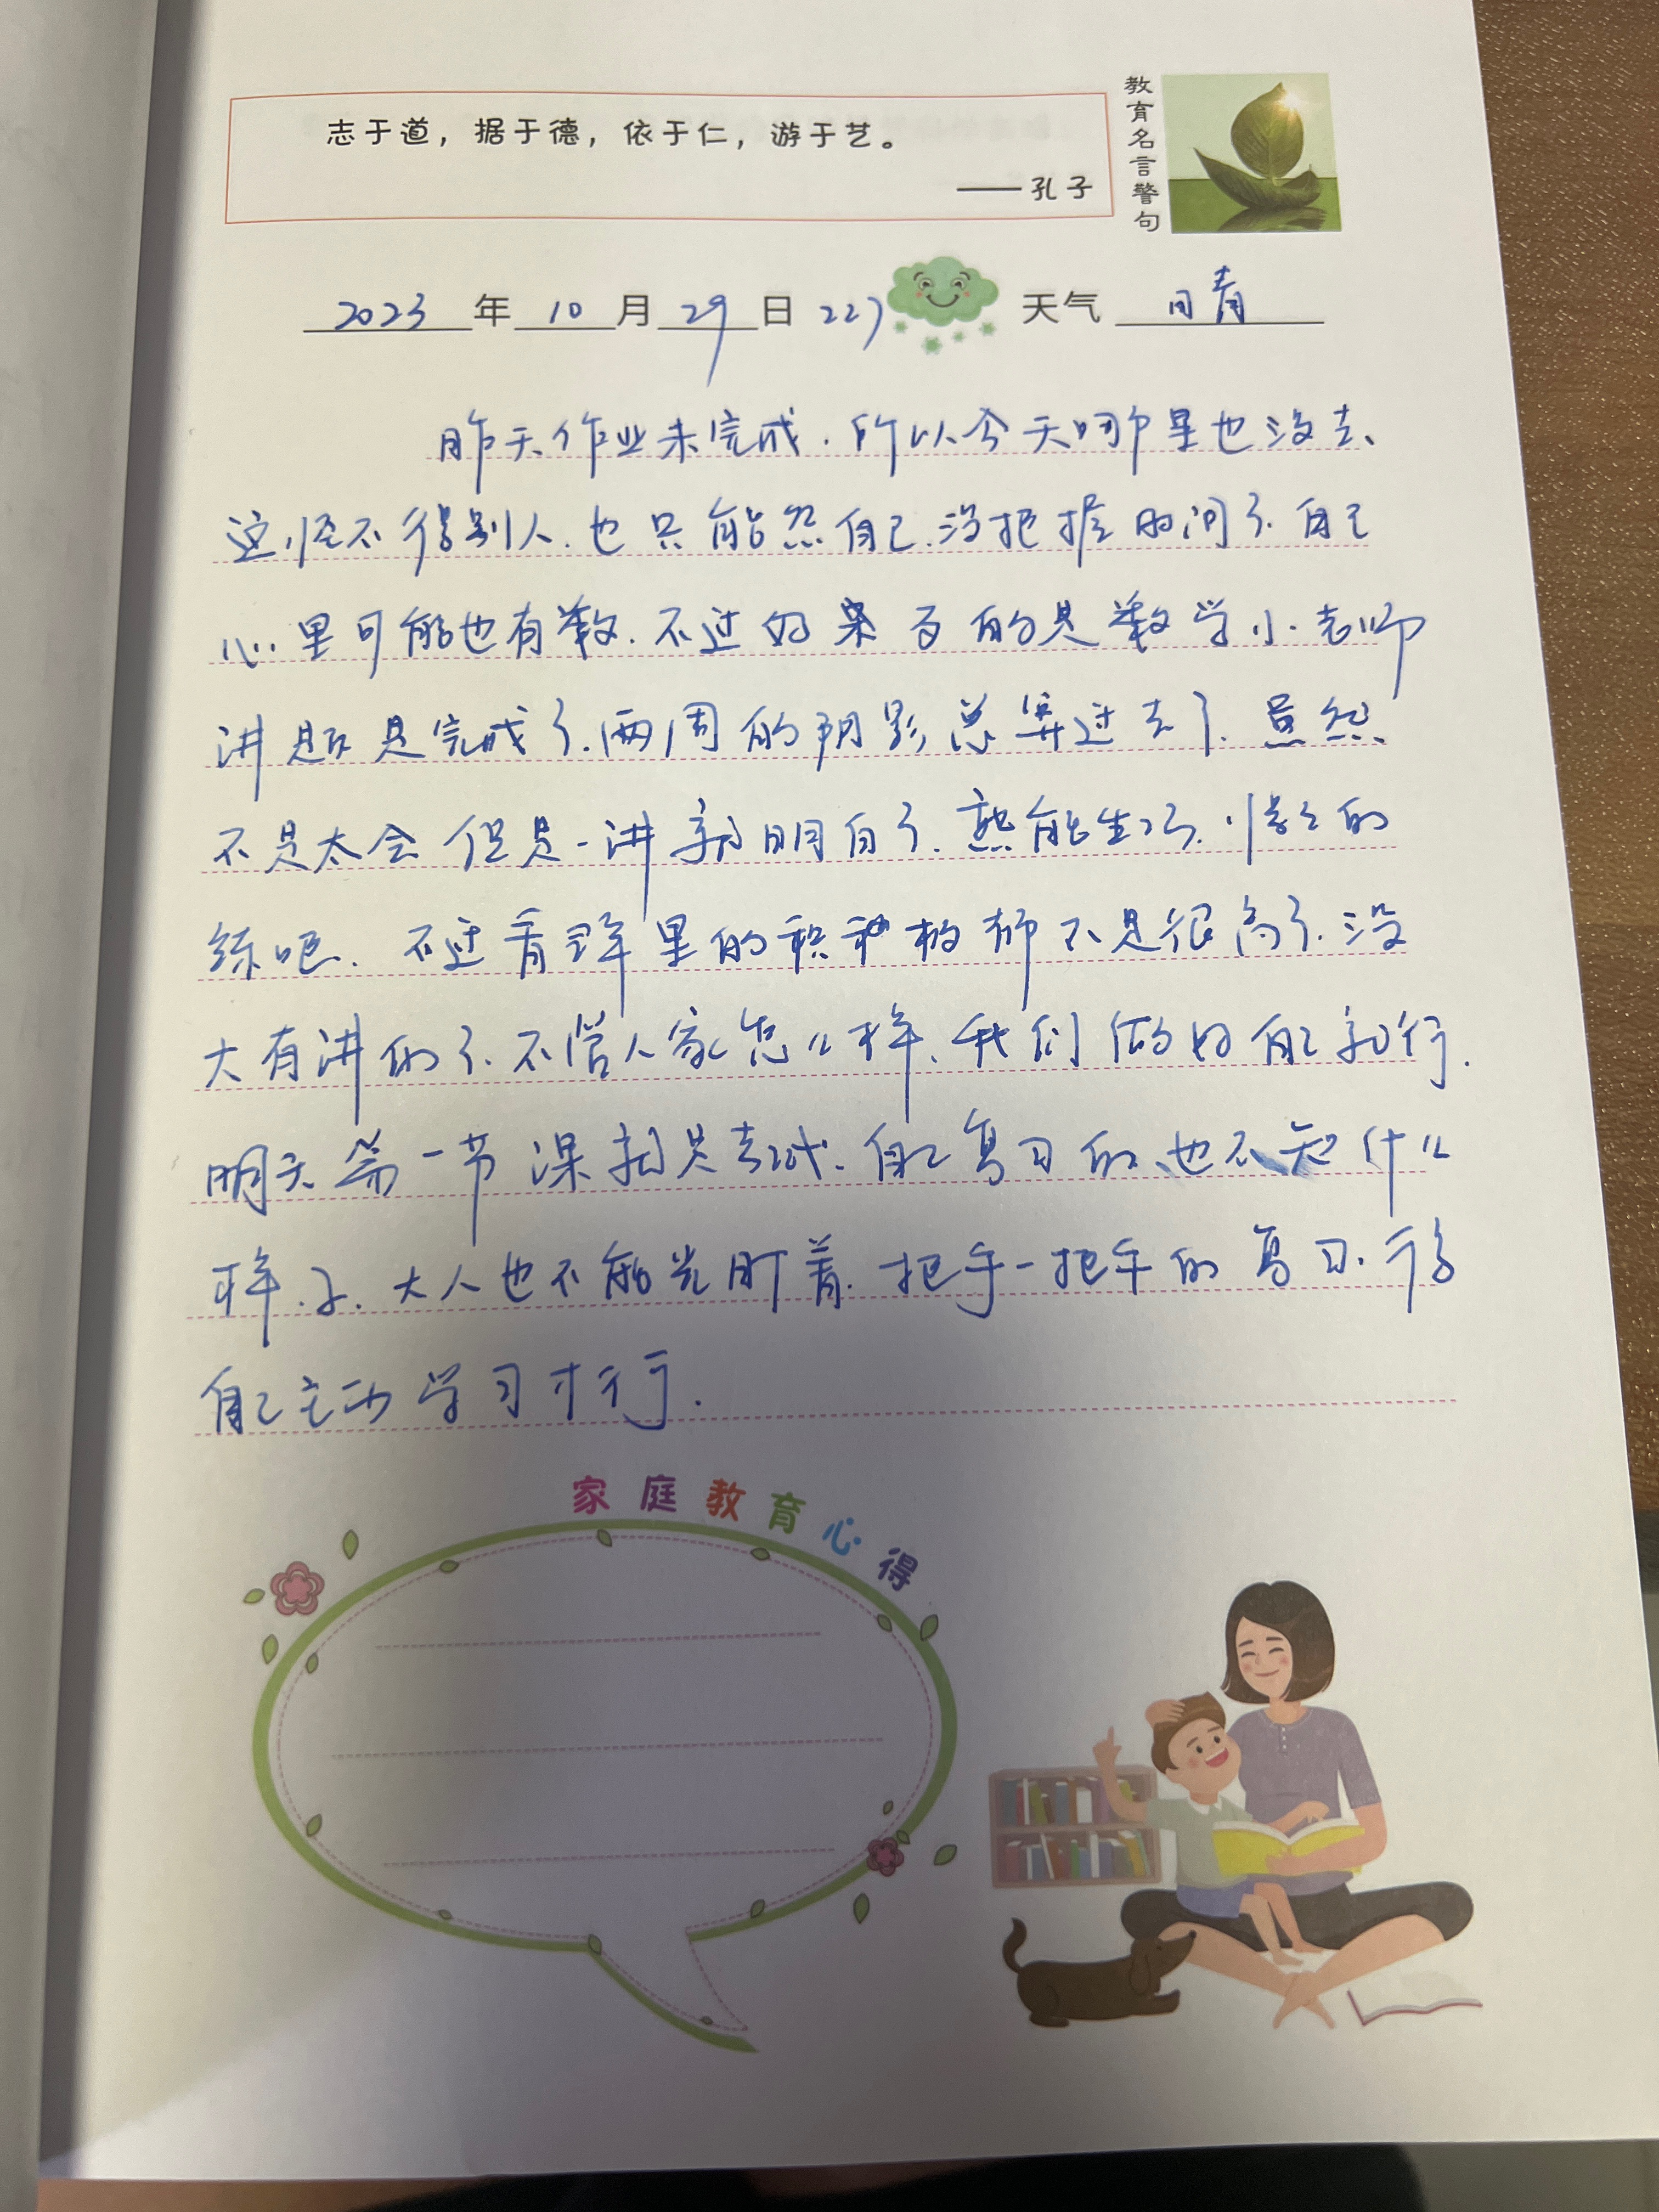 志于道，据于德，依于仁，游于艺。
——孔子
教育名言警句
2023年10月29日 227 天气 晴
昨天作业未完成.所以今天哪里也没去、
这怪不得别人.也只能怨自己.没把握时间了.自己
心里可能也有数.不过好来的是数学小老师
讲题是完成了.两周的阴影总算过去了.虽然
不是太会但是一讲就明白了.熟能生巧.慢慢的
练吧.不过看群里的积极不是很高了.没
大有讲的了.不管人家怎么样.我们做好自己就行.
明天第一节课就是考试.自己复习的、也不知什么
样子.大人也不能光盯着.把手一把手的复习.得
自己主动学习才行.
家庭教育心得